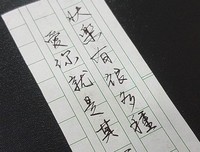 快樂有很多種
愛你就是其